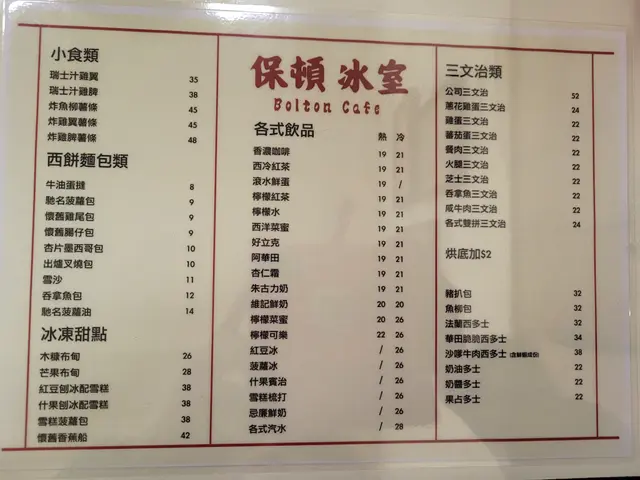 小食類
瑞士汁雞翼 35
瑞士汁雞髀 38
炸魚柳薯條 45
炸雞翼薯條 45
炸雞髀薯條 48
西餅麵包類
牛油蛋撻 8
馳名菠蘿包 9
懷舊雞尾包 9
懷舊腸仔包 9
杏片墨西哥包 10
出爐叉燒包 10
雪沙 11
吞拿魚包 12
馳名菠蘿油 14
冰凍甜點
木糠布甸 26
芒果布甸 28
紅豆刨冰配雪糕 38
什果刨冰配雪糕 38
雪糕菠蘿包 38
懷舊香蕉船 42
保頓冰室
Bolton Cafe
各式飲品 熱 冷
香濃咖啡 19 21
西冷紅茶 19 21
滾水鮮蛋 19 /
檸檬紅茶 19 21
檸檬水 19 21
西洋菜蜜 19 21
好立克 19 21
阿華田 19 21
杏仁霜 19 21
朱古力奶 19 21
維記鮮奶 20 20
檸檬菜蜜 20 26
檸檬可樂 22 26
紅豆冰 / 26
菠蘿冰 / 26
什果賓治 / 26
雪糕梳打 / 26
忌廉鮮奶 / 26
各式汽水 / 28
三文治類
公司三文治 52
蔥花雞蛋三文治 24
雞蛋三文治 22
蕃茄蛋三文治 22
餐肉三文治 22
火腿三文治 22
芝士三文治 22
吞拿魚三文治 22
咸牛肉三文治 22
各式雙拼三文治 24
烘底加$2
豬扒包 32
魚柳包 32
法蘭西多士 32
華田脆脆西多士 34
沙嗲牛肉西多士 (含鮮蝦成份) 38
奶油多士 22
奶醬多士 22
果占多士 22